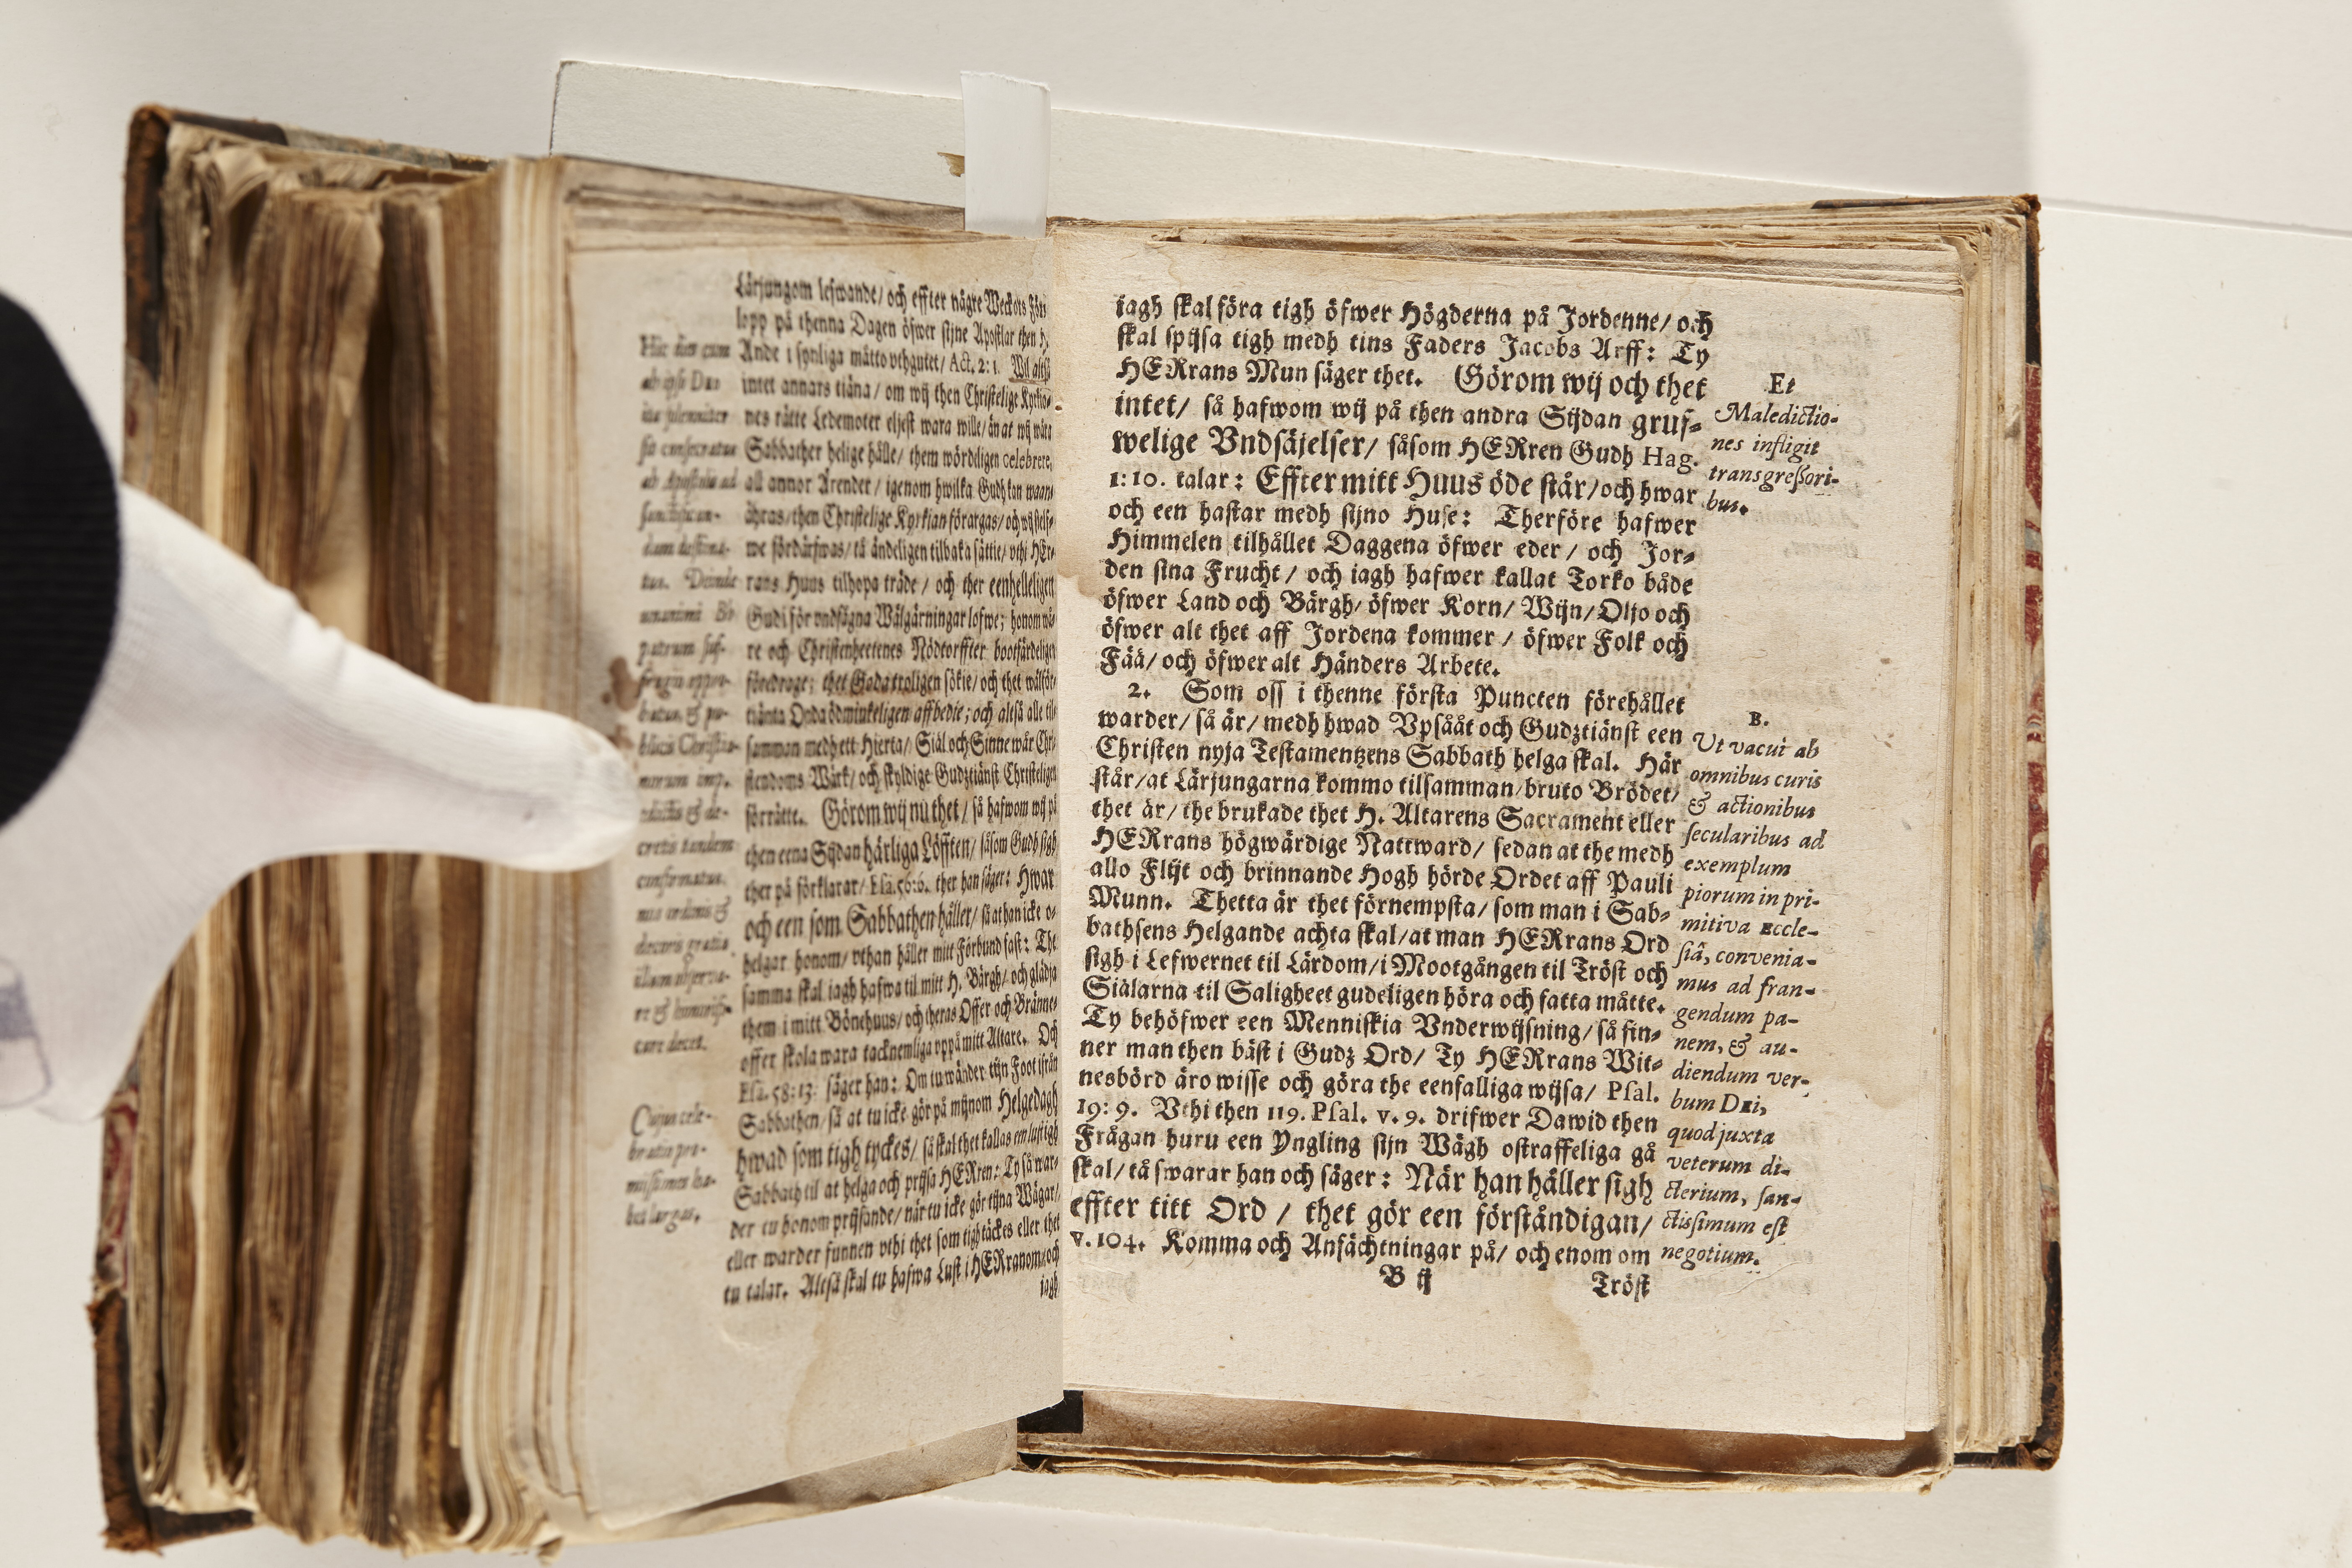 Lärjungom lefwande/ och effter någre Weckors För-
lopp på thenna Dagen öfwer sijne Apostlar then H.
Ande i synliga måtto vthgutet/ Act. 2: 1. Wil altså
intet annars tiäna/ om wij then Christelige Kyrkio-
nes rätte Ledemoter eljest wara wille/ än at wij wåra
Sabbather helige hålle/ them wördeligen celebrere,
all annor Ärender/ igenom hwilka Gudh kan waan-
ähras/ then Christelige Kyrkian förargas/ och wij sielf-
we fördärfwas/ tå ändeligen tilbaka sättie/ vthi HEr-
rans Huus tilhopa träde/ och ther eenhelleligen
Gudi för vndfågna Wälgärningar lofwe; honom wå-
re och Christenheetenes Nödtorffter bootfärdeligen
föredrage; thet Goda troligen sökie/ och thet wälför-
tiänta Onda ödmiukeligen affbedie; och altså alle til-
samman medh ett Hierta/ Siäl och Sinne wår Chri-
stendoms Wärk/ och skyldige Gudztiänst Christeligen
förrätte. Görom wij nu thet/ så hafwom wij på
then eena Sijdan härliga Löfften/ såsom Gudh sigh
ther på förklarar/ Esa. 56: 6. ther han säger: Hwar
och een som Sabbathen håller/ så at han icke o-
helgar honom/ vthan håller mitt Förbund fast: The
samma skal iagh hafwa til mitt H. Bärgh/ och glädja
them i mitt Bönehuus/ och theras Offer och Bränne-
offer skola wara tacknemliga vppå mitt Altare. Och
Esa. 58: 13. säger han: Om tu wänder tijn Foot ifrån
Sabbathen/ så at tu icke gör på mijnom Helgedagh
hwad som tigh tyckes/ så skal thet kallas een lustigh
Sabbath til at helga och prijsa HERren: Ty så war-
der tu honom prijsande/ när tu icke gör tijna Wägar/
eller warder funnen vthi thet som tigh täckes eller thet
tu talar. Altså skal tu hafwa Lust i HERranom/ och
iagh
Hic dies cum
ab ipso Deo
ita solenniter
sit consecratus
ab Apostolis ad
tus. Deinde
unanimi
patrum suf-
blicis Christia-
cretis tandem
confirmatus.
nus ordinis &
decoris gratia
illum observa-
care decet.
Cujus cele-
bratio pro-
missiones ha-
bet largas.
iagh skal föra tigh öfwer Högderna på Jordenne/ och
skal spijsa tigh medh tins Faders Jacobs Arff: Ty
HERrans Mun säger thet. Görom wij och thet
intet/ så hafwom wij på then andra Sijdan gruf-
welige Vndsäjelser/ såsom HERren Gudh Hag.
1: 10. talar: Effter mitt Huus öde står/ och hwar
och een hastar medh sijno Huse: Therföre hafwer
Himmelen tilhållet Daggena öfwer eder/ och Jor-
den sina Frucht/ och iagh hafwer kallat Torko både
öfwer Land och Bärgh/ öfwer Korn/ Wijn/ Oljo och
öfwer alt thet aff Jordena kommer/ öfwer Folk och
Fää/ och öfwer alt Händers Arbete.
2. Som oss i thenne första Puncten förehållet
warder/ så är/ medh hwad Vpsååt och Gudztiänst een
Christen nyja Testamentzens Sabbath helga skal. Här
står/ at Lärjungarna kommo tilsamman/ bruto Brödet/
thet är/ the brukade thet H. Altarens Sacrament eller
HERrans högwärdige Nattward/ sedan at the medh
allo Flijt och brinnande Hogh hörde Ordet aff Pauli
Munn. Thetta är thet förnempsta/ som man i Sab-
bathsens Helgande achta skal/ at man HERrans Ord
sigh i Lefwernet til Lärdom/ i Mootgången til Tröst och
Siälarna til Saligheet gudeligen höra och fatta måtte.
Ty behöfwer een Menniskia Vnderwijsning/ så fin-
ner man then bäst i Gudz Ord/ Ty HERrans Wit-
nesbörd äro wisse och göra the eenfalliga wijsa/ Psal.
19: 9. Vthi then 119. Psal. v. 9. drifwer Dawid then
Frågan huru een Yngling sijn Wägh ostraffeliga gå
skal/ tå swarar han och säger: När han håller sigh
effter titt Ord/ thet gör een förståndigan/
v. 104. Komma och Anfächtningar på/ och enom om
B ij
Tröst
Et
Maledictio-
nes infligit
transgressori-
bus.
B.
Ut vacui ab
omnibus curis
& actionibus
secularibus ad
exemplum
piorum in pri-
mitiva Eccle-
siâ, convenia-
mus ad fran-
gendum pa-
nem, & au-
diendum ver-
bum DEi,
quod juxta
veterum di-
cterium, san-
ctissimum est
negotium.